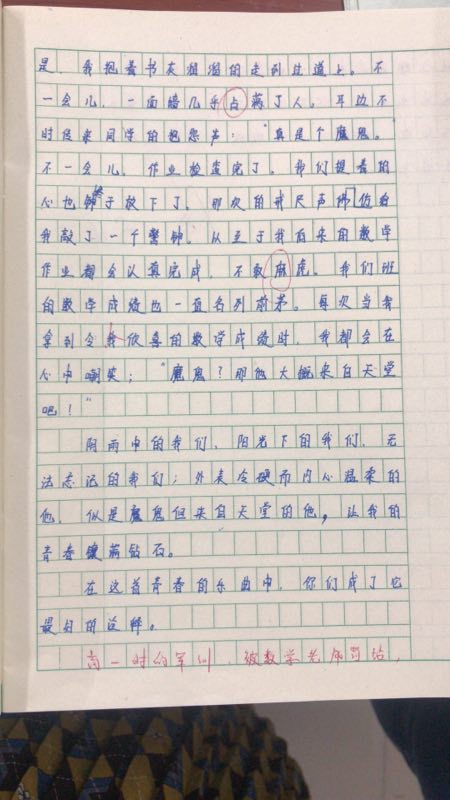 是，我抱着书灰溜溜的走到过道上。不
一会儿，一面墙几乎占满了人。耳边不
时传来同学的抱怨声：“真是个魔鬼。
不一会儿，作业检查完了。我们提着的
心也终于放下了。那次的戒尺声彿仿给
我敲了一个警钟。从至于我后来的数学
作业都会认真完成，不敢麻虎。我们班
的数学成绩也一直名列前茅。每次当我
拿到令我欣喜的数学成绩时，我都会在
心中嘲笑：“魔鬼？那他大概来自天堂
吧！”
阴雨中的我们，阳光下的我们，无
法忘记的我们；外表冷硬而内心温柔的
他，似是魔鬼但来自天堂的他，让我的
青春镶满钻石。
在这首青春的乐曲中，你们成了它
最好的诠释。
高一时的军训，被数学老师罚站，